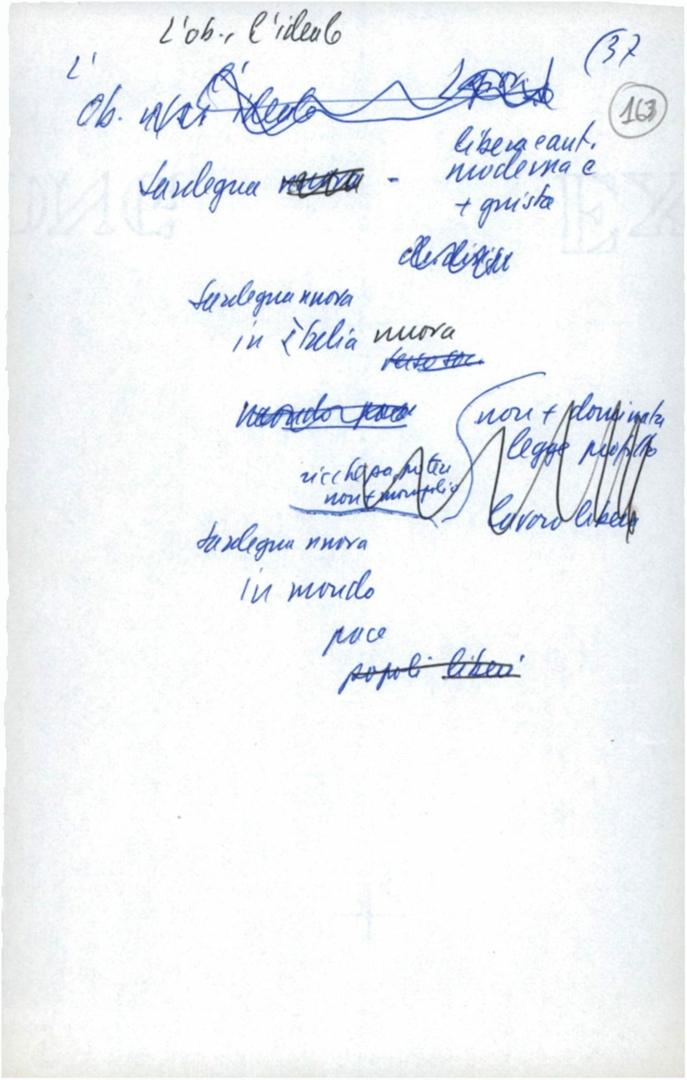 L'ob., l'ideale
(37
163
L'
ob. l' ideale
libera e aut.
moderna e
+ giusta
Sardegna nuova -
Sardegna nuova
in Italia nuova
mondo pace
non + dominata
legge profitto
ricchezza
non + monopolio
lavoro libero
Sardegna nuova
in mondo
pace
popoli liberi